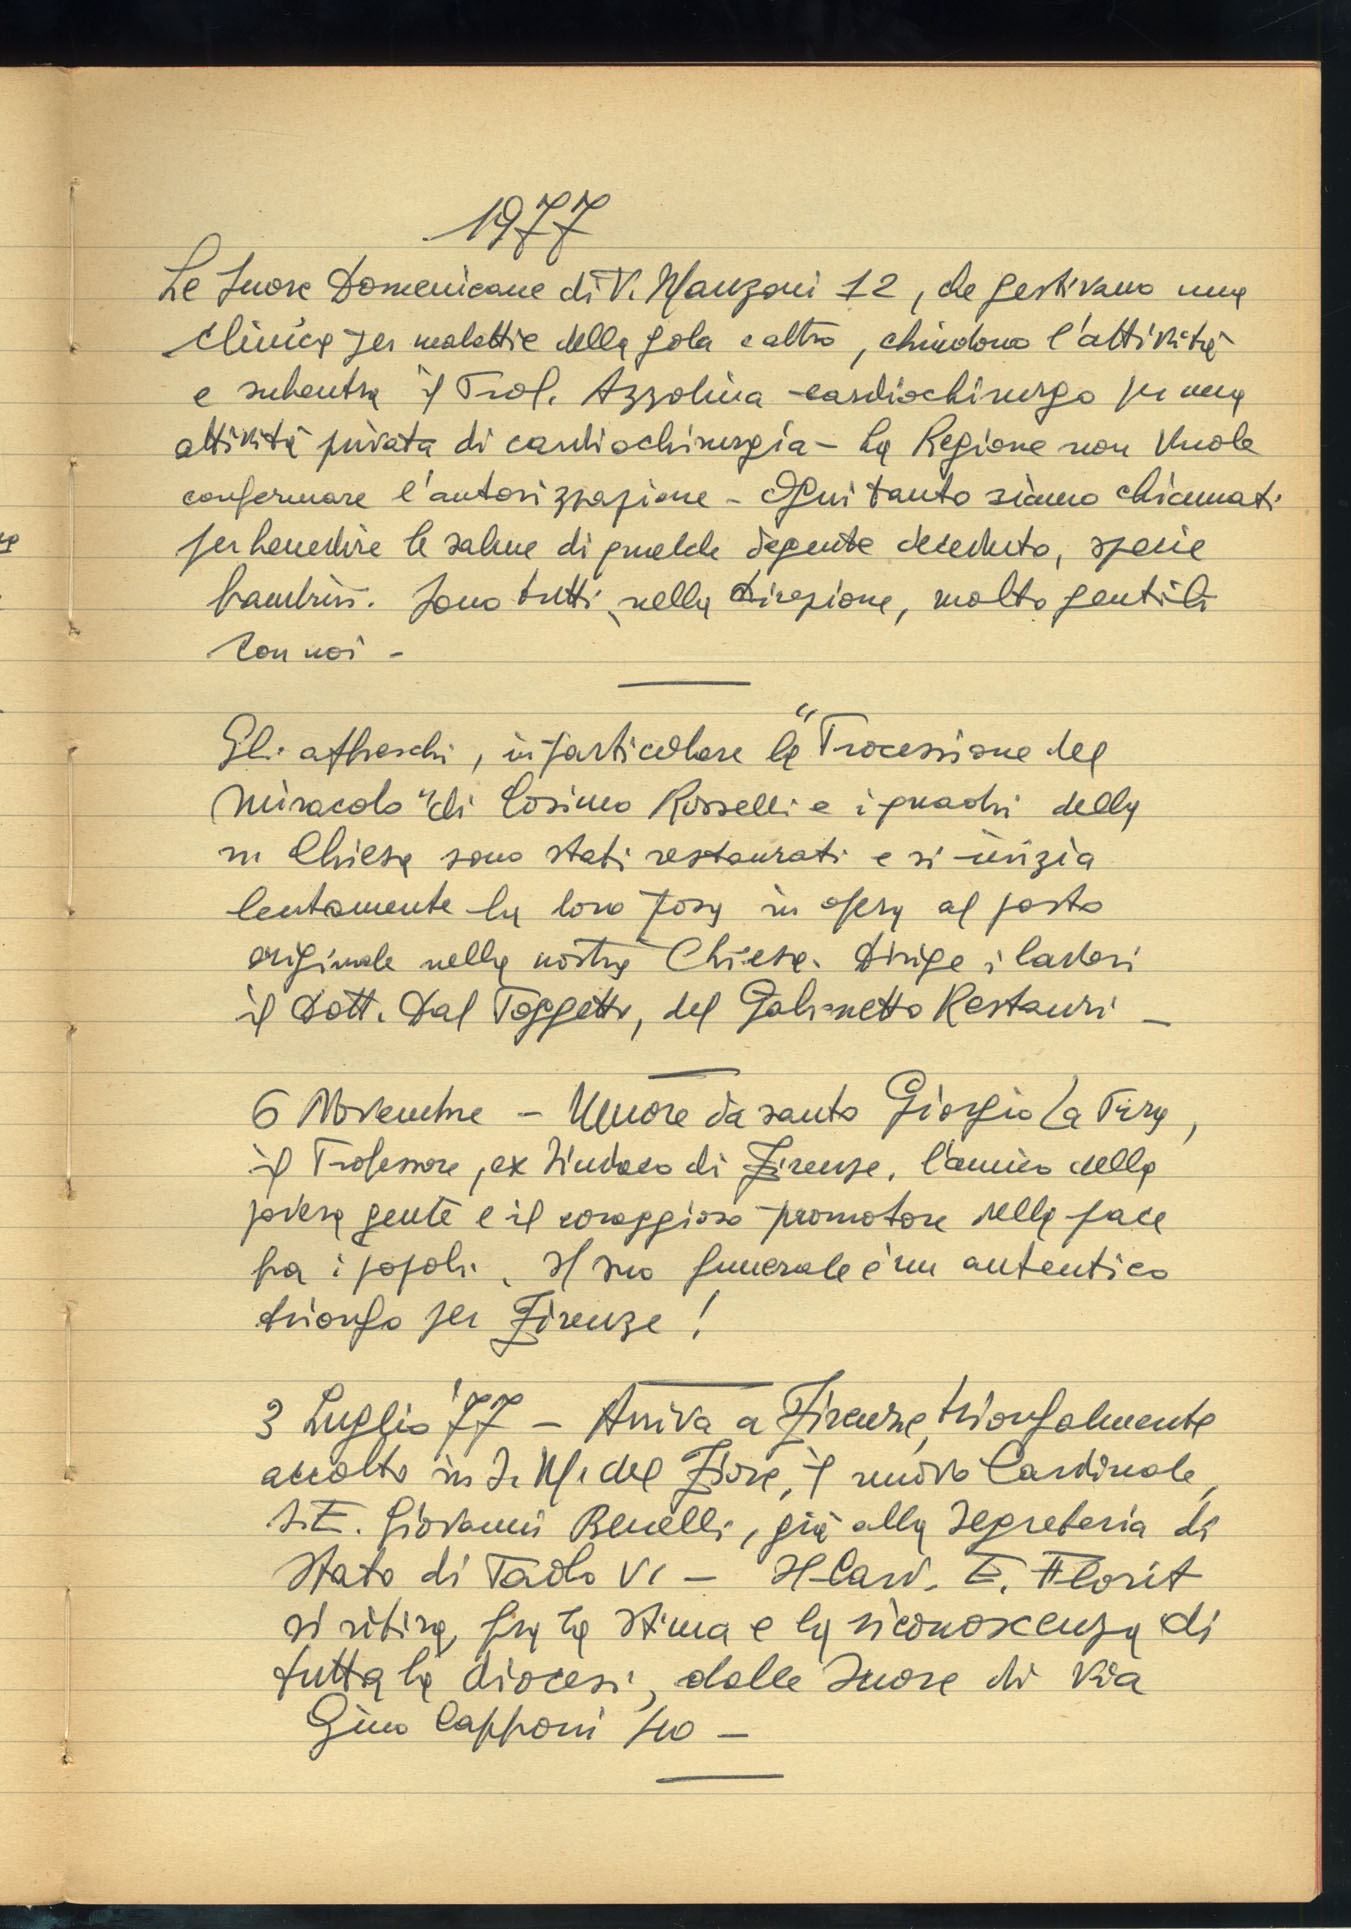 1977
Le Suore Domenicane di V. Manzoni 12, che gestivano una
clinica per malattie della gola e altro, chiudono l'attività
e subentra il Prof. Azzolina - cardiochirurgo per una
attività privata di cardiochirurgia - La Regione non vuole
confermare l'autorizzazione - Ogni tanto siamo chiamati
per benedire le salme di qualche degente deceduto, specie
bambini. Sono tutti, nella direzione, molto gentili
con noi -
Gli affreschi, in particolare la "Processione del
Miracolo" di Cosimo Rosselli e i quadri della
Chiesa sono stati restaurati e si inizia
lentamente la loro posa in opera al posto
originale nella nostra Chiesa. Dirige i lavori
il Dott. Dal Poggetto, del Gabinetto Restauri -
6 Novembre - Muore da santo Giorgio La Pira,
il Professore, ex Sindaco di Firenze, l'amico della
povera gente e il coraggioso promotore della pace
fra i popoli. Il suo funerale è un autentico
trionfo per Firenze!
3 Luglio '77 - Arriva a Firenze, trionfalmente
accolto in S. M. del Fiore, il nuovo Cardinale,
S.E. Giovanni Benelli, già alla Segreteria di
Stato di Paolo VI - Il Card. E. Florit
si ritira, fra la stima e la riconoscenza di
tutta la diocesi, dalle Suore di Via
Gino Capponi